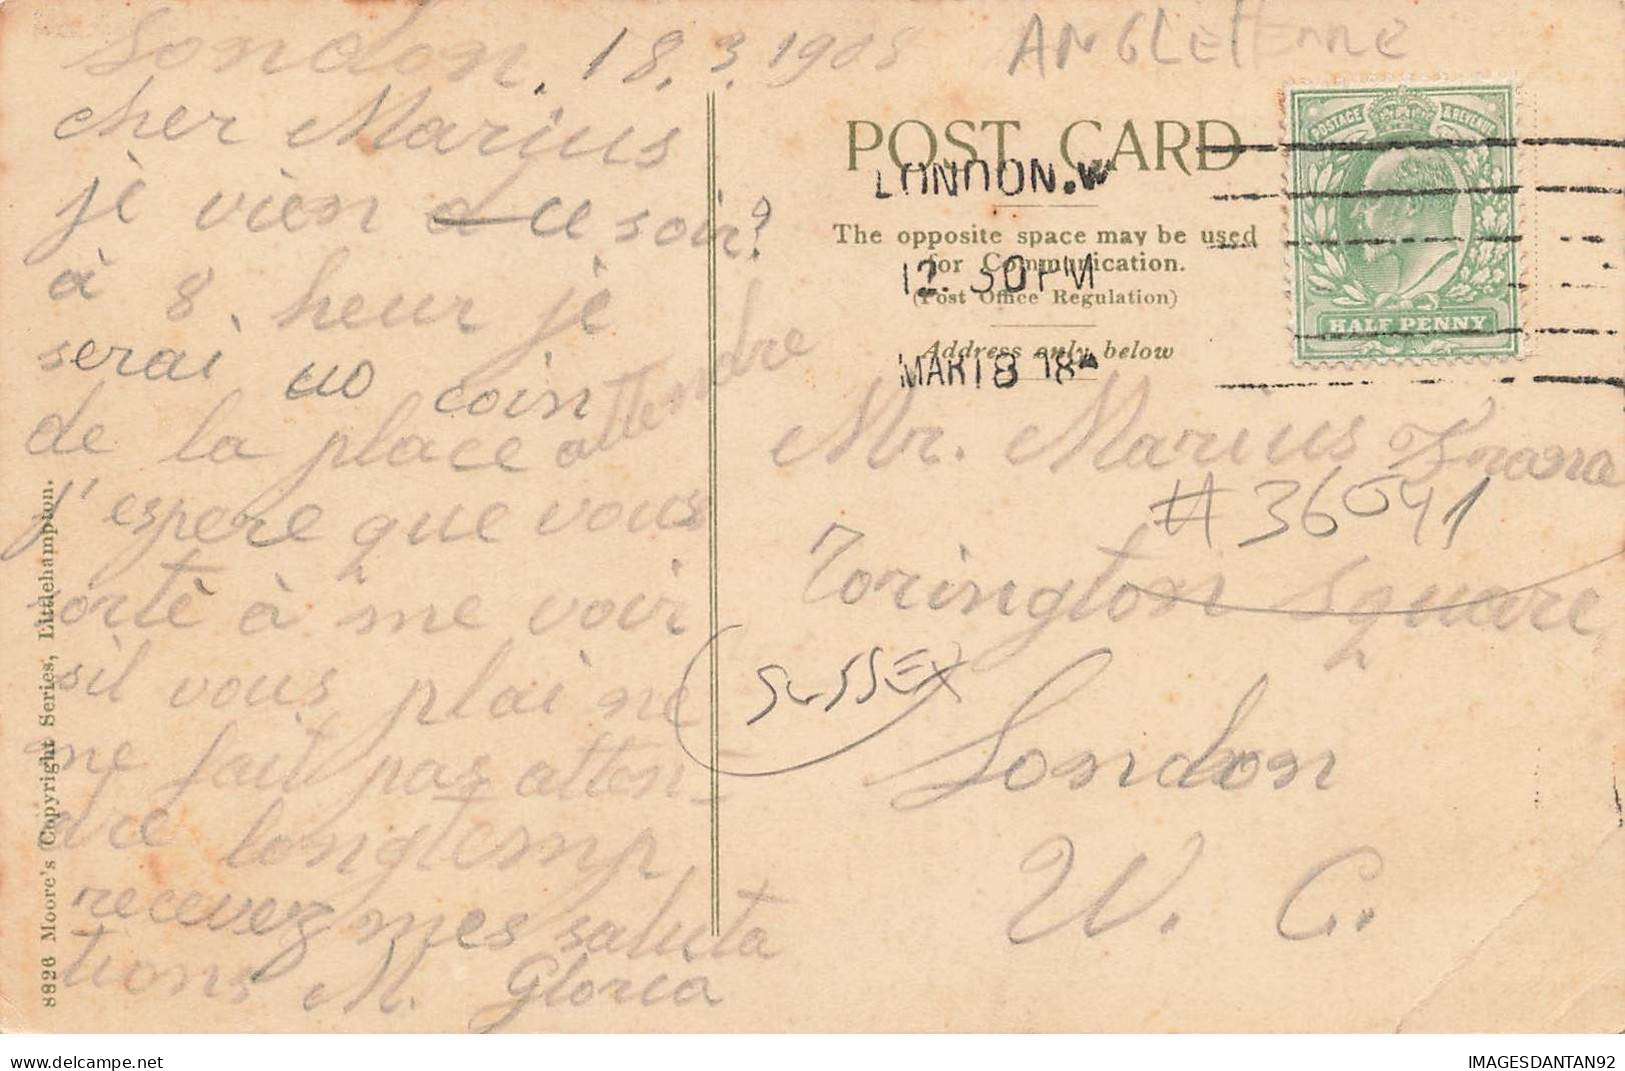 London. 18.3.1908
cher Marius
jè vien ce soir?
à 8. heur jè
serai uo coin
de la place attendre
j'espere que vous
sortè à me voir
sil vous plai ne
me fait pas atten-
dre longtemp
recevez mes saluta
tions M. Gloria
8826 Moore's Copyright Series, Littlehampton.
ANGLETERRE
POSTAGE & REVENUE
HALF PENNY
POST CARD
LONDON.W
The opposite space may be used
for Communication.
(Post Office Regulation)
12.30PM
Address only below
MAR 18
Mr. Marius
#36041
Torington Square,
SUSSEX
London
W. C.
www.delcampe.net
IMAGESDANTAN92